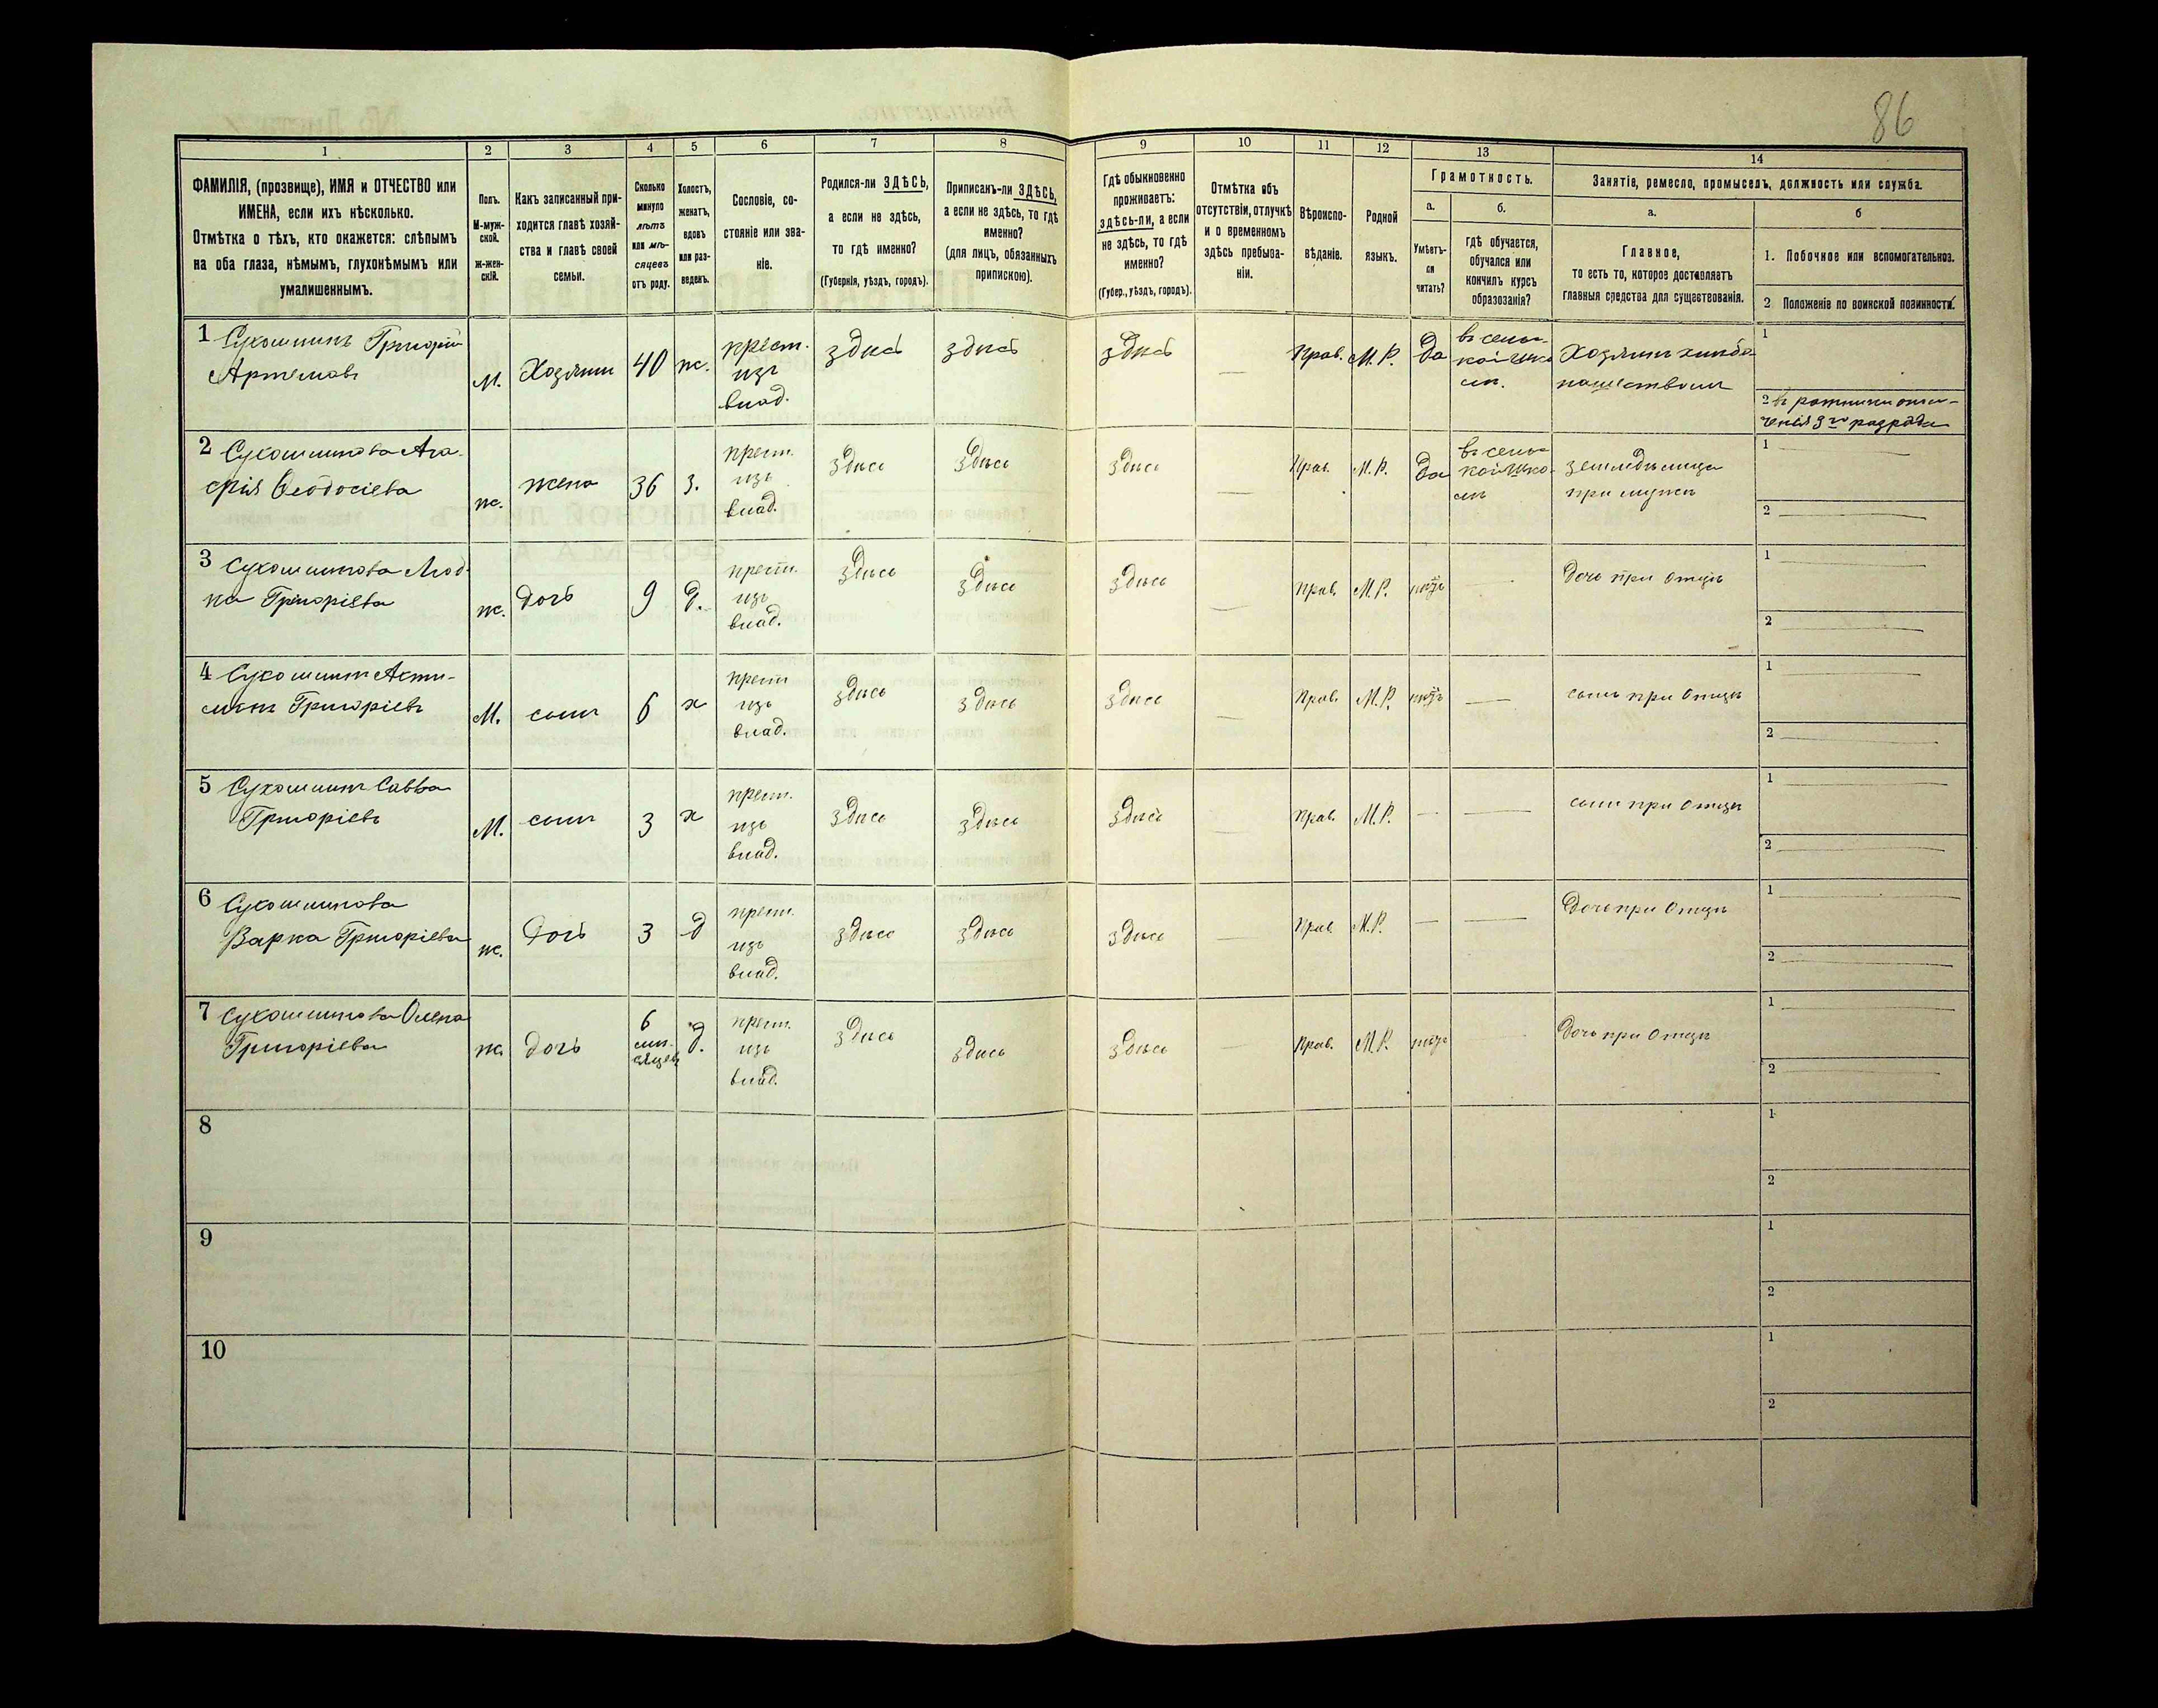 86
1 2 3 4 5 6 7 8 9 10 11 12 13 14
ФАМИЛІЯ, (прозвище), ИМЯ и ОТЧЕСТВО или
ИМЕНА, если ихъ нѣсколько.
Отмѣтка о тѣхъ, кто окажется: слѣпымъ
на оба глаза, нѣмымъ, глухонѣмымъ или
умалишеннымъ.
Полъ.
М-муж-
ской.
Ж-жен-
скій.
Какъ записанный при-
ходится главѣ хозяй-
ства и главѣ своей
семьи.
Сколько
минуло
лѣтъ
или мѣ-
сяцевъ
отъ роду.
Холостъ,
женатъ,
вдовъ
или раз-
веденъ.
Сословіе, со-
стояніе или зва-
ніе.
Родился-ли ЗДѢСЬ,
а если не здѣсь,
то гдѣ именно?
(Губернія, уѣздъ, городъ).
Приписанъ-ли ЗДѢСЬ,
а если не здѣсь, то гдѣ
именно?
(для лицъ, обязанныхъ
припискою).
Гдѣ обыкновенно
проживаетъ:
здѣсь-ли, а если
не здѣсь, то гдѣ
именно?
(Губер., уѣздъ, городъ).
Отмѣтка объ
отсутствіи, отлучкѣ
и о временномъ
здѣсь пребыва-
ніи.
Вѣроиспо-
вѣданіе.
Родной
языкъ.
Грамотность.
а.
Умѣетъ-
ли
читать?
б.
гдѣ обучается,
обучался или
кончилъ курсъ
образованія?
Занятіе, ремесло, промыселъ, должность или служба.
а.
Главное,
то есть то, которое доставляетъ
главныя средства для существованія.
б
1. Побочное или вспомогательное.
2 Положеніе по воинской повинности.
1 Сухошинъ Григорій
Артемовъ
М. Хозяин 40 ж.
крест.
изъ
влад.
здѣсь здѣсь здѣсь — Прав. М. Р. да
въ сель-
кой шко
лѣ.
Хозяин хлѣбо
пашествомъ
1
2 въ ратники опол-
ченія 2го разряда
2 Сухошинова Ага-
фія Ѳеодосіева
ж. жена 36 з.
крест.
изъ
влад.
здѣсь здѣсь здѣсь — Прав. М. Р. да
въ сель-
кой шко-
лѣ
земледѣлица
при мужѣ
1 —
2 —
3 Сухошинова Люд-
ка Григоріева
ж. дочь 9 д.
крест.
изъ
влад.
здѣсь здѣсь здѣсь — Прав. М. Р. нѣтъ —
дочь при отцѣ
1 —
2 —
4 Сухошинъ
Григоріевъ
М. сынъ 6 х
крест
изъ
влад.
здѣсь здѣсь здѣсь — Прав. М. Р. нѣтъ —
сынъ при отцѣ
1 —
2 —
5 Сухошинъ Савва
Григоріевъ
М. сынъ 3 х
крест.
изъ
влад.
здѣсь здѣсь здѣсь — Прав. М. Р. — —
сынъ при отцѣ
1 —
2 —
6 Сухошинова
Варка Григоріева
ж. дочь 3 д
крест.
изъ
влад.
здѣсь здѣсь здѣсь — Прав М. Р. — —
Дочь при отцѣ
1 —
2 —
7 Сухошинова Олена
Григоріева
ж. дочь
6
мѣ-
сяцев
д.
крест.
изъ
влад.
здѣсь здѣсь здѣсь — Прав. М. Р. нѣтъ
Дочь при отцѣ
1 —
2 —
8
1
2
9
1
2
10
1
2